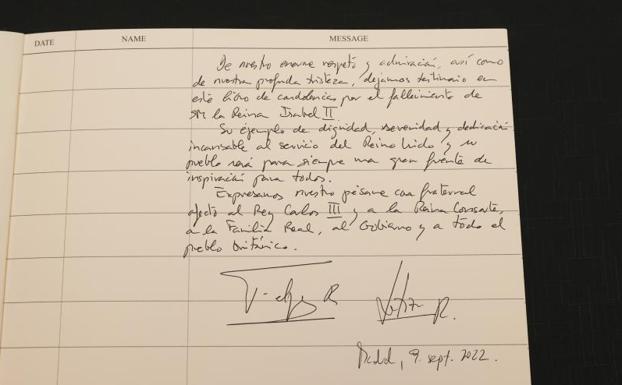 DATE NAME MESSAGE
De nuestro enorme respeto y admiración, así como
de nuestra profunda tristeza, dejamos testimonio en
este libro de condolencias por el fallecimiento de
SM la Reina Isabel II
Su ejemplo de dignidad, serenidad y dedicación
incansable al servicio del Reino Unido y su
pueblo será para siempre una gran fuente de
inspiración para todos.
Expresamos nuestro pésame con fraternal
afecto al Rey Carlos III y a la Reina Consorte,
a la Familia Real, al Gobierno y a todo el
pueblo británico.
Felipe R Letizia R.
Madrid, 9. sept. 2022.